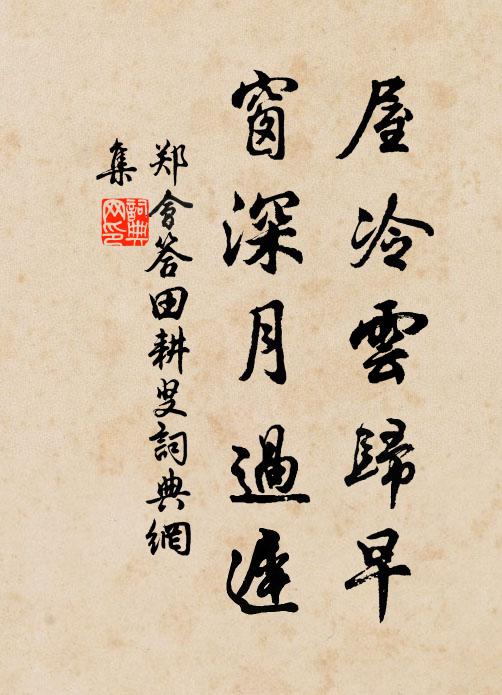 屋冷雲歸早
窗深月過遲
郑會答田耕叟詞典網
集
詞典
网印